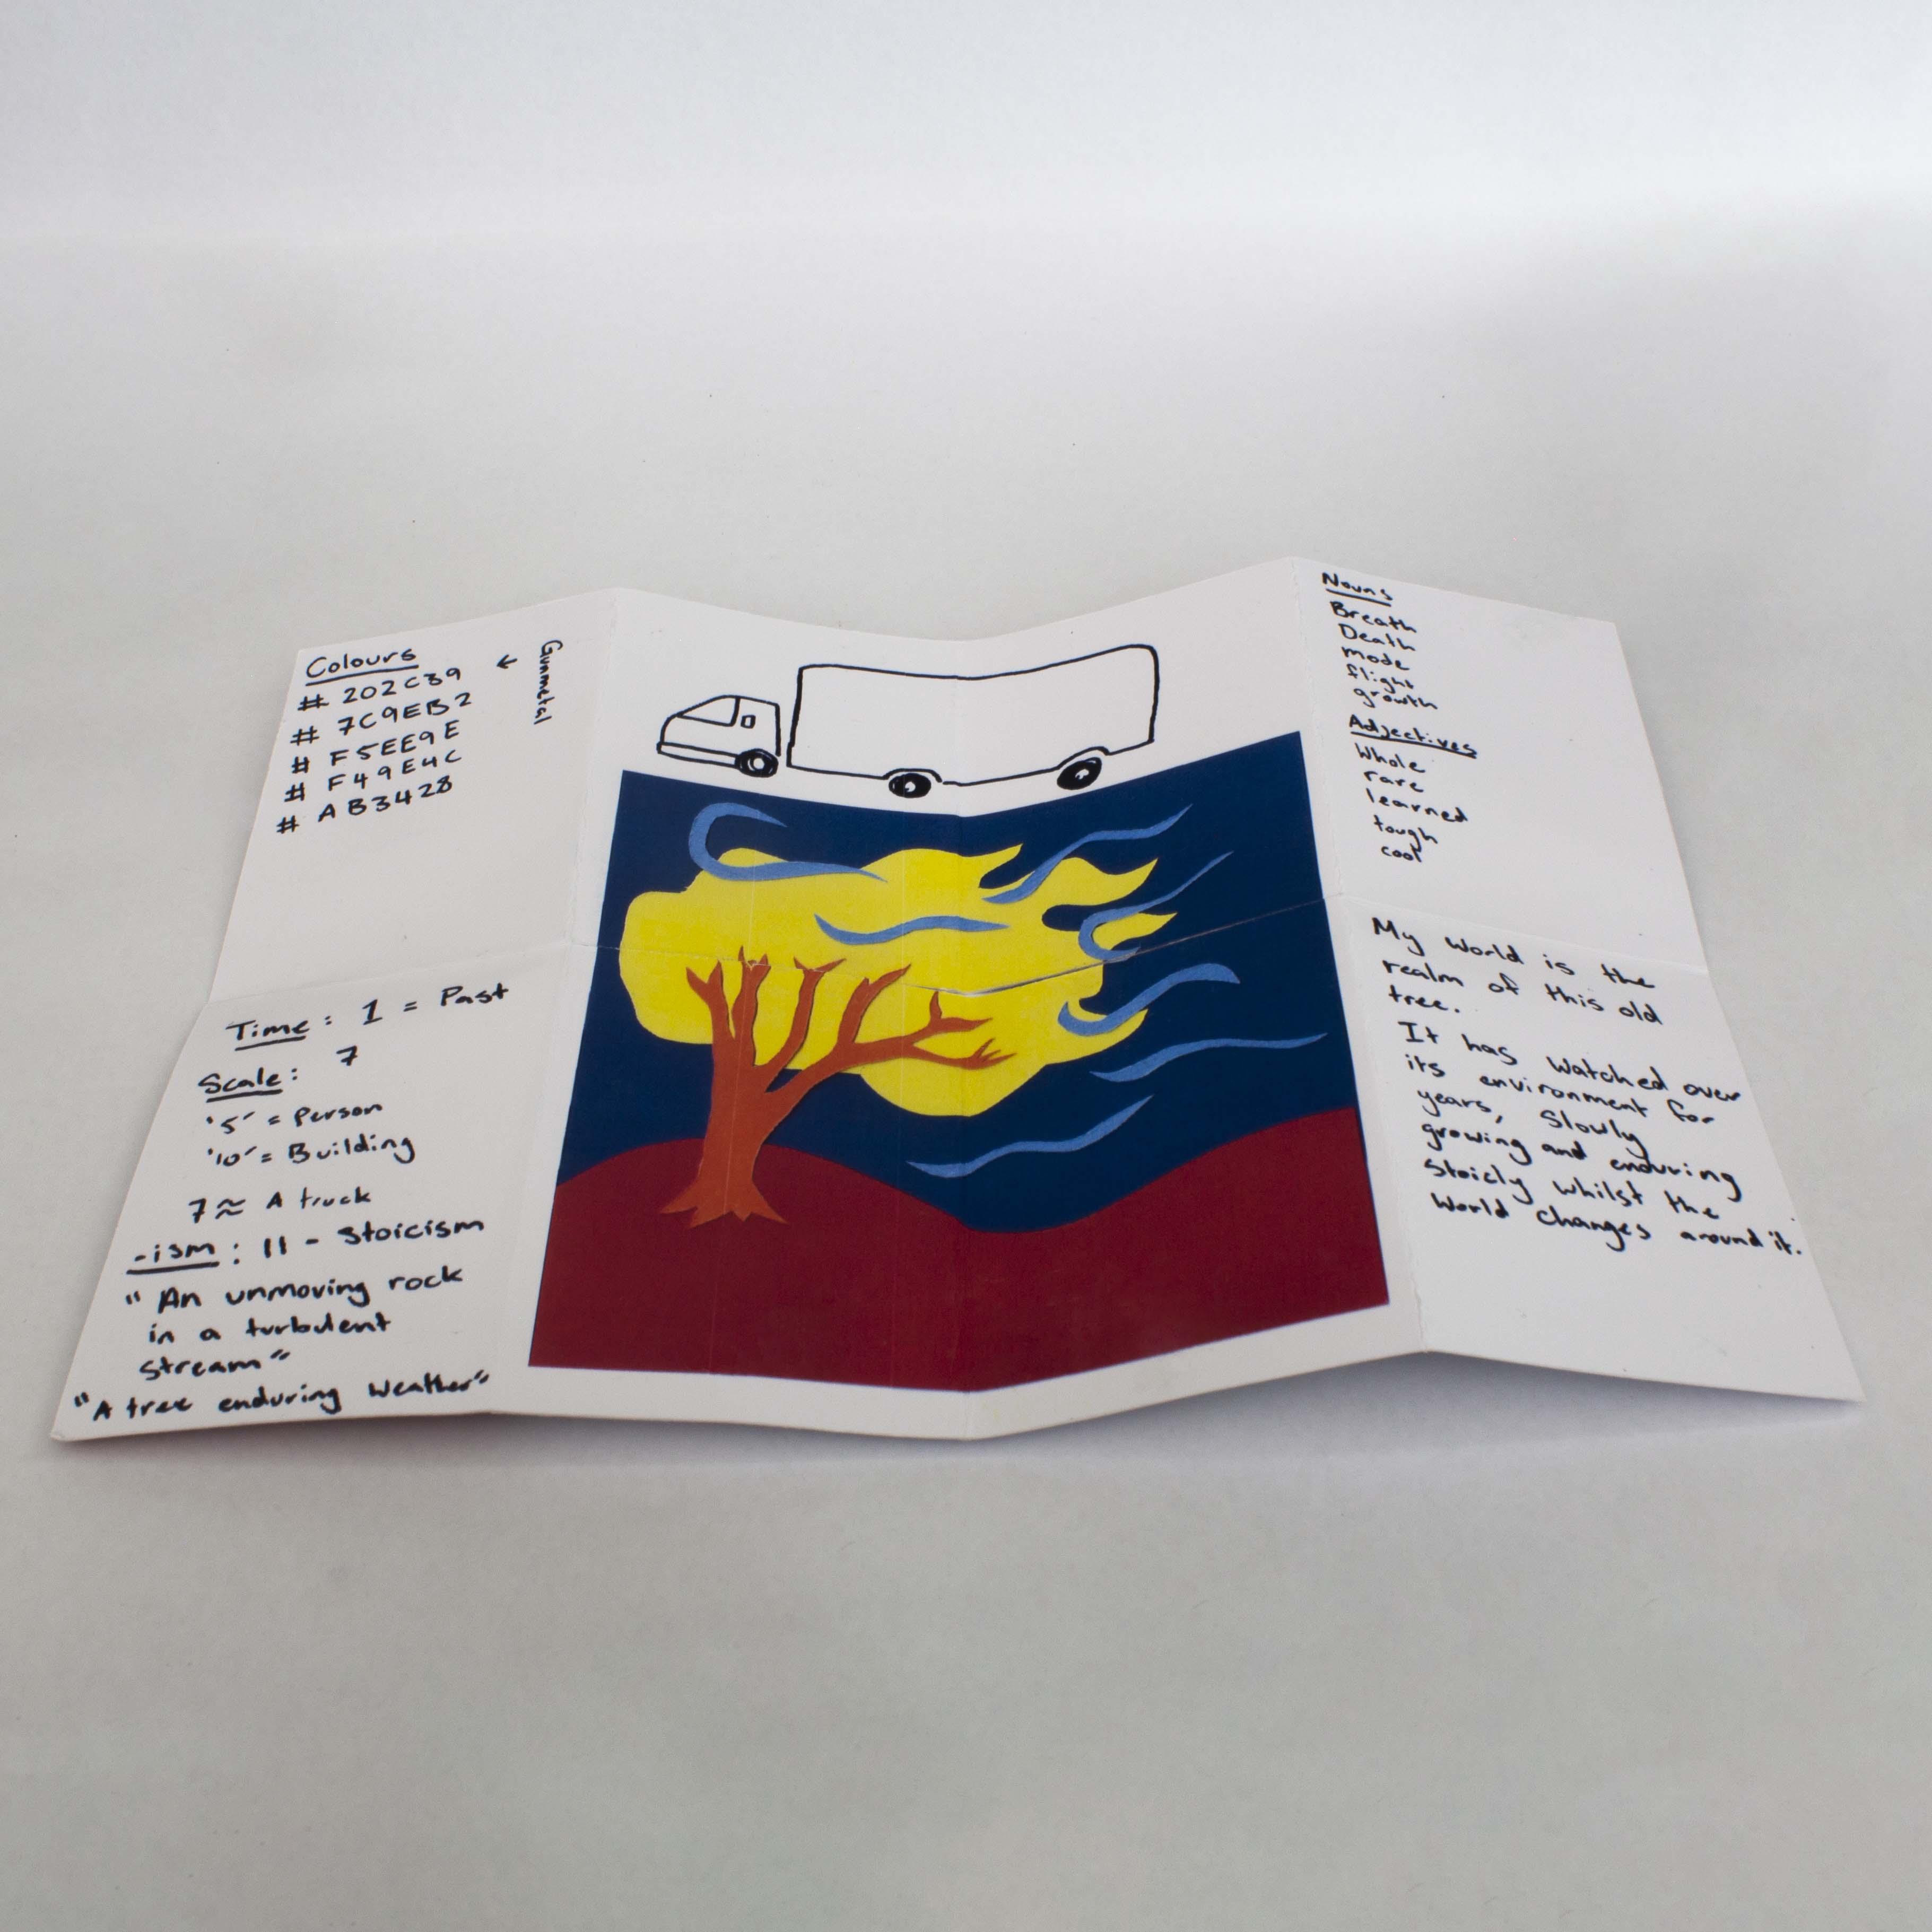 Colours
# 202C39
# 7C9EB2
# F5EE9E
# F49E4C
# AB3428
← Gunmetal
Time: 1 = Past
Scale: 7
'5' = Person
'10' = Building
7 ≈ A truck
-ism: 11 - Stoicism
"An unmoving rock
in a turbulent
stream"
"A tree enduring weather"
Nouns
Breath
Death
mode
flight
growth
Adjectives
Whole
rare
learned
tough
cool
My world is the
realm of this old
tree.
It has watched over
its environment for
years, slowly
growing and enduring
stoicly whilst the
world changes around it.